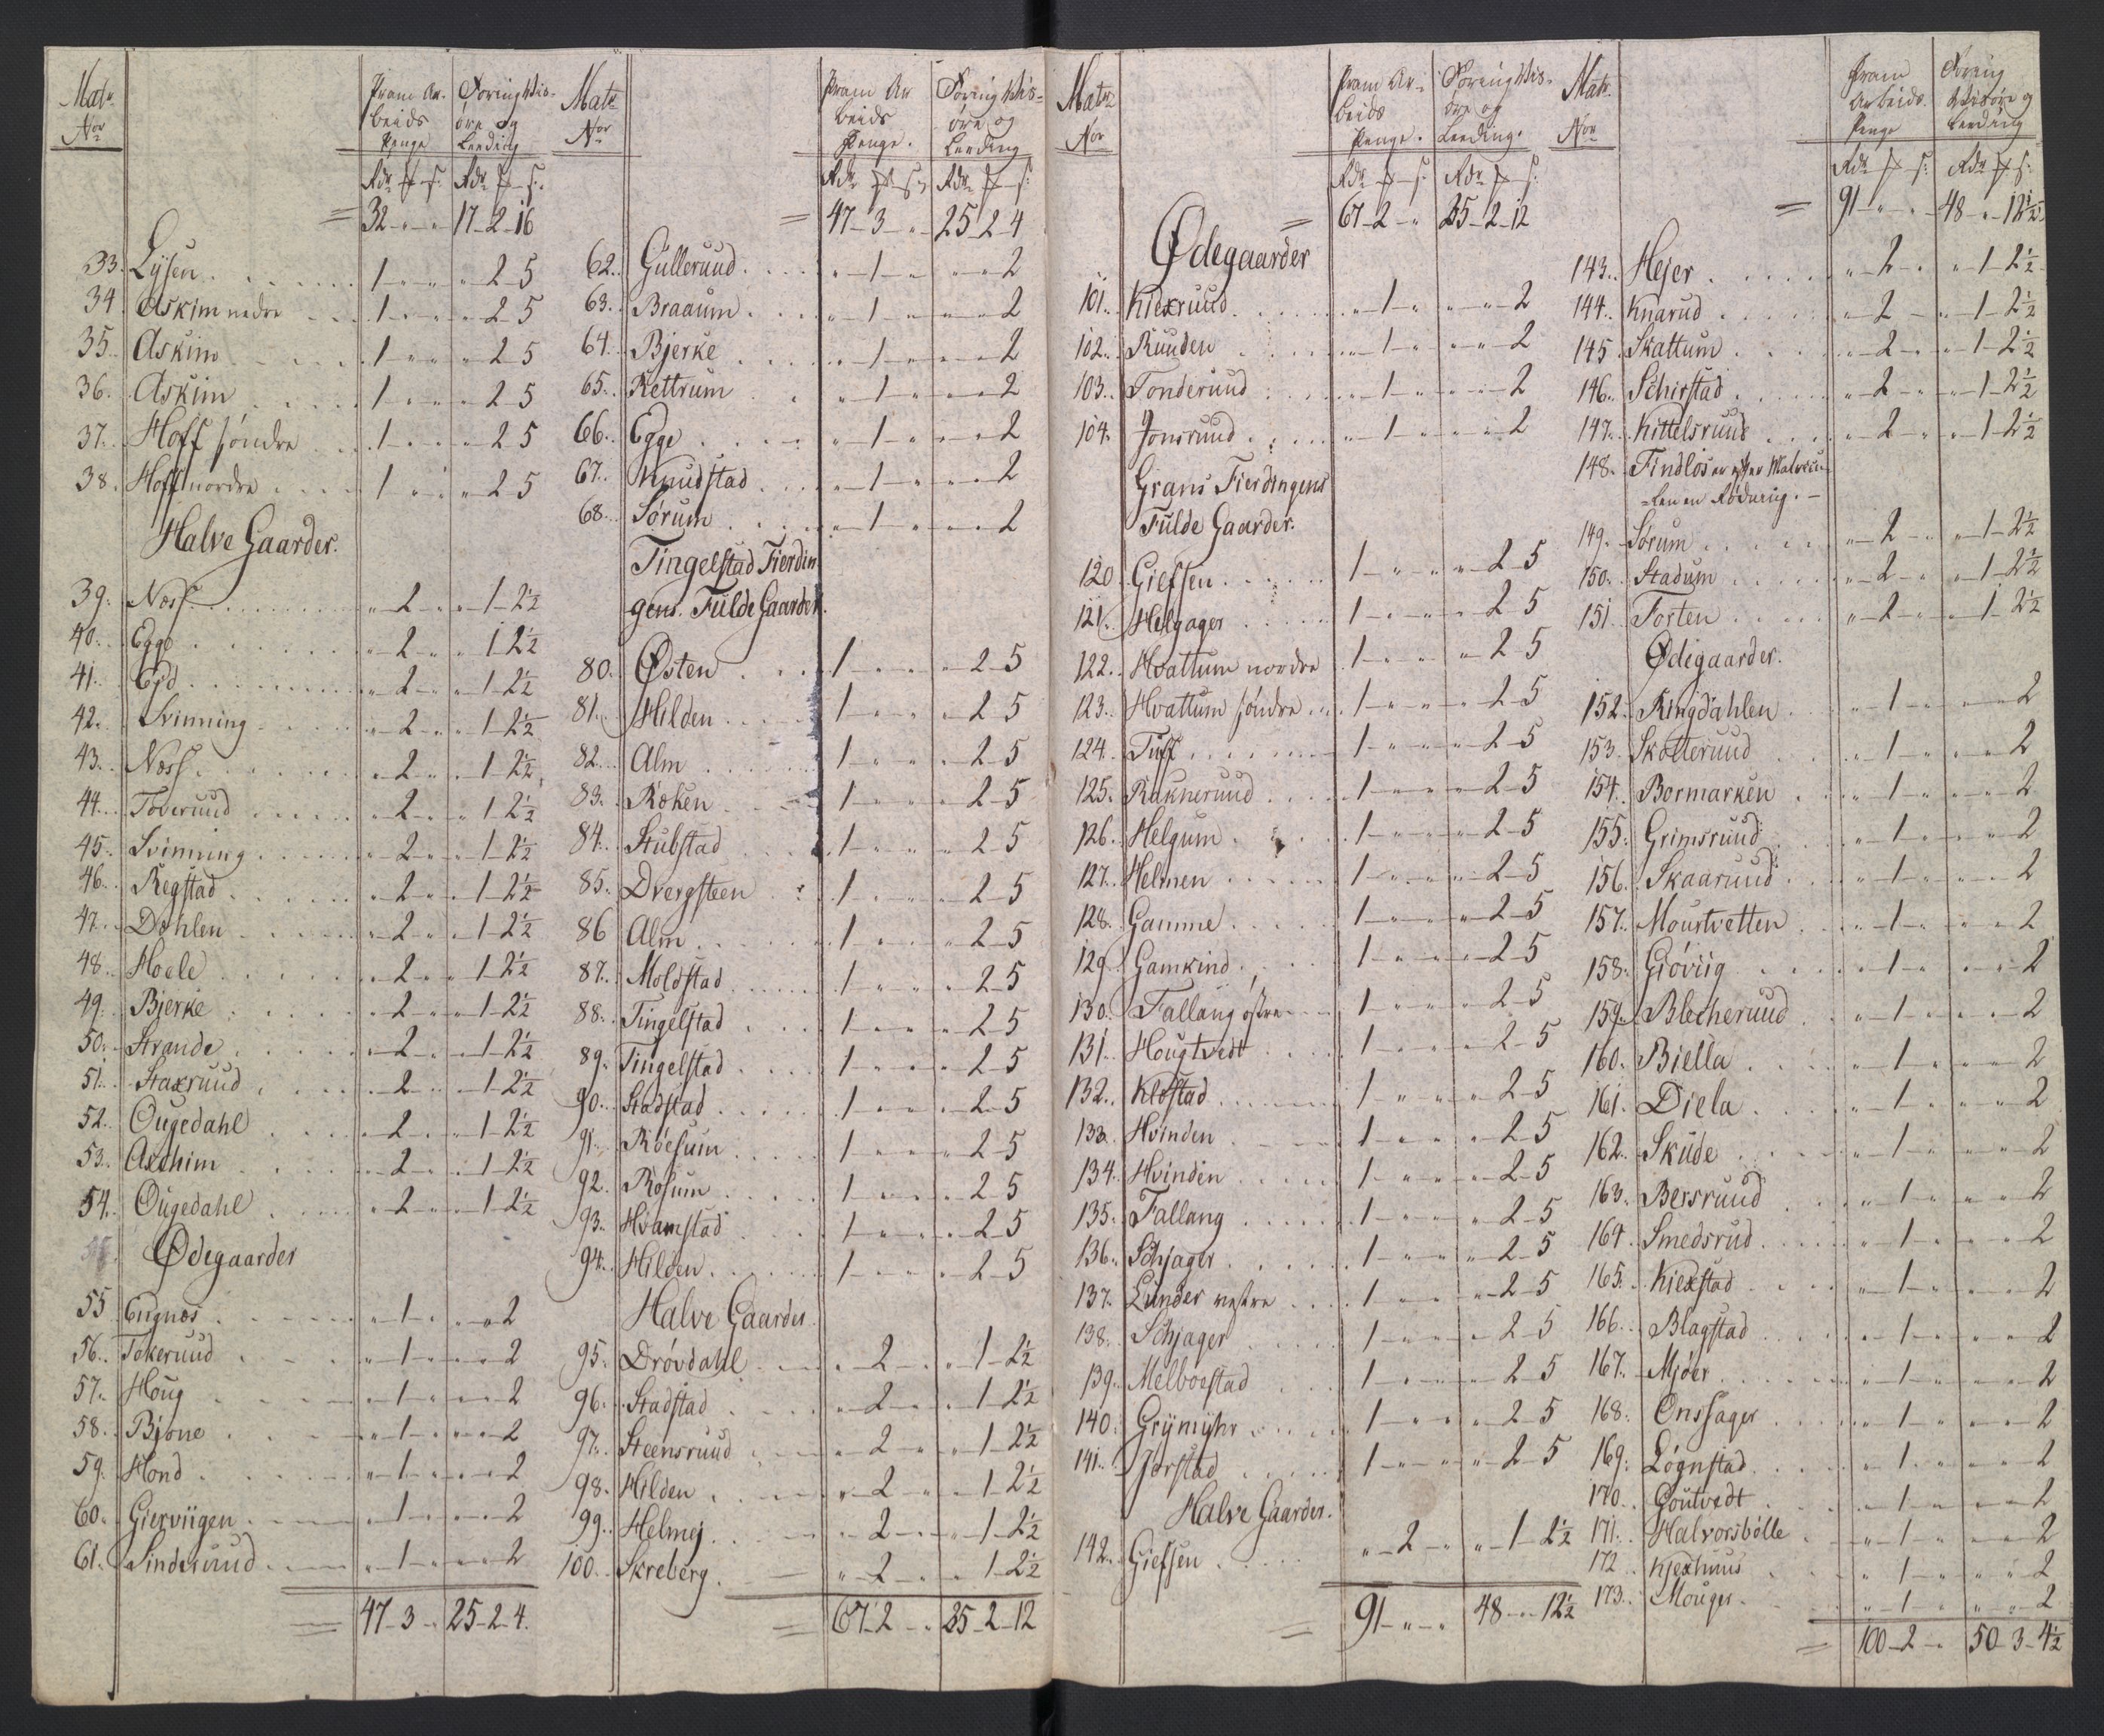 Matr. Nor
Pram Ar-
beids
Penge
Foring Vis-
øre og
Leeding
Rdr # s. Rdr # s.
= 32 - „ - „ 17 - 2 - 16
33. Lysen 1 „ „ „ 2 5
34 Askim nedre 1 „ „ „ 2 5
35. Askim 1 „ „ „ 2 5
36. Askim 1 „ „ „ 2 5
37. Hoff søndre 1 „ „ „ 2 5
38. Hoff nordre 1 „ „ „ 2 5
Halve Gaarder.
39. Næss „ 2 „ „ 1 2½
40. Egge „ 2 „ „ 1 2½
41. Eid „ 2 „ „ 1 2½
42. Svinning „ 2 „ „ 1 2½
43. Næss „ 2 „ „ 1 2½
44. Toverund „ 2 „ „ 1 2½
45. Svinning „ 2 „ „ 1 2½
46. Regstad „ 2 „ „ 1 2½
47. Dahlen „ 2 „ „ 1 2½
48. Hoele „ 2 „ „ 1 2½
49. Bjerke „ 2 „ „ 1 2½
50. Strande „ 2 „ „ 1 2½
51. Staxruud „ 2 „ „ 1 2½
52. Ougedahl „ 2 „ „ 1 2½
53. Aschim „ 2 „ „ 1 2½
54. Ougedahl „ 2 „ „ 1 2½
Ødegaarder
55 Engnæs „ 1 „ „ „ 2
56. Tokeruud „ 1 „ „ „ 2
57. Houg „ 1 „ „ „ 2
58. Bjone „ 1 „ „ „ 2
59. Hond „ 1 „ „ „ 2
60. Gierviigen „ 1 „ „ „ 2
61. Sinderuud „ 1 „ „ „ 2
= 47 - 3 - „ 25 - 2 - 4.
Matr Nor
Pram Ar
beids
Penge.
Foring Vis-
øre og
Leeding
Rdr # s. Rdr # s.
= 47 - 3 „ 25 2 4
62. Gulleruud „ 1 „ „ „ 2
63. Braaum „ 1 „ „ „ 2
64. Bjerke „ 1 „ „ „ 2
65. Rettrum „ 1 „ „ „ 2
66. Egge „ 1 „ „ „ 2
67. Knudstad „ 1 „ „ „ 2
68. Sørum „ 1 „ „ „ 2
Tingelstad Fierdin
gens. Fulde Gaarder.
80. Østen 1 „ „ „ 2 5
81. Hilden 1 „ „ „ 2 5
82. Alm 1 „ „ „ 2 5
83. Røken 1 „ „ „ 2 5
84. Stubstad 1 „ „ „ 2 5
85. Dvergsteen 1 „ „ „ 2 5
86 Alm 1 „ „ „ 2 5
87. Moldstad 1 „ „ „ 2 5
88. Tingelstad 1 „ „ „ 2 5
89. Tingelstad 1 „ „ „ 2 5
90. Stadstad 1 „ „ „ 2 5
91. Røesum 1 „ „ „ 2 5
92. Røsum 1 „ „ „ 2 5
93. Hvamstad 1 „ „ „ 2 5
94. Hilden 1 „ „ „ 2 5
Halve Gaarder.
95. Drøvdahl „ 2 „ „ 1 2½
96. Stadstad „ 2 „ „ 1 2½
97. Steensruud „ 2 „ „ 1 2½
98. Hilden „ 2 „ „ 1 2½
99. Helmej „ 2 „ „ 1 2½
100. Skreberg „ 2 „ „ 1 2½
= 67 - 2 - „ 35 - 2 - 12
Matr. Nor
Pram Ar-
beids
Penge.
Foring Vis-
øre og
Leeding.
Rdr # s. Rdr # s.
= 67 - 2 - „ 35 - 2 - 12
Ødegaarder
101. Kiexruud „ 1 „ „ „ 2
102. Ruuden „ 1 „ „ „ 2
103. Tonderuud „ 1 „ „ „ 2
104. Jonsruud „ 1 „ „ „ 2
Grans Fierdingens
Fulde Gaarder.
120 Giefsen 1 „ „ „ 2 5
121. Helgager 1 „ „ „ 2 5
122. Hvattum nordre 1 „ „ „ 2 5
123. Hvattum søndre 1 „ „ „ 2 5
124. Tuff 1 „ „ „ 2 5
125. Raknerund 1 „ „ „ 2 5
126. Helgum 1 „ „ „ 2 5
127. Helmen 1 „ „ „ 2 5
128. Gamme 1 „ „ „ 2 5
129 Gamkind 1 „ „ „ 2 5
130. Fallang østre 1 „ „ „ 2 5
131. Hougtvedt 1 „ „ „ 2 5
132. Klostad 1 „ „ „ 2 5
133. Hvinden 1 „ „ „ 2 5
134. Hvinden 1 „ „ „ 2 5
135. Fallang 1 „ „ „ 2 5
136. Schjager 1 „ „ „ 2 5
137. Lunder vestre 1 „ „ „ 2 5
138. Schjager 1 „ „ „ 2 5
139. Melboestad 1 „ „ „ 2 5
140. Grymyhr 1 „ „ „ 2 5
141. Jorstad 1 „ „ „ 2 5
Halve Gaarder.
142. Giefsen „ 2 „ „ 1 2½
= 91 - „ - „ 48 - „ - 12½
Matr. Nor
Pram
Arbeids.
Penge
Foring
Visøre og
Leeding
Rdr # s. Rdr # s.
= 91 „ „ 48 „ 12½
143. Hejer „ 2 „ „ 1 2½
144. Knarud „ 2 „ „ 1 2½
145. Skattum „ 2 „ „ 1 2½
146. Schirstad „ 2 „ „ 1 2½
147. Kittelsruud „ 2 „ „ 1 2½
148. Findlos er efter Matricu-
len en Røduing. -
149. Sørum „ 2 „ „ 1 2½
150. Stadum „ 2 „ „ 1 2½
151. Torten „ 2 „ „ 1 2½
Ødegaarder.
152. Ringdahlen „ 1 „ „ „ 2
153. Skotteruud „ 1 „ „ „ 2
154. Bormarken „ 1 „ „ „ 2
155. Grimsruud „ 1 „ „ „ 2
156. Skaaruud „ 1 „ „ „ 2
157. Moustvetten „ 1 „ „ „ 2
158. Giøviig „ 1 „ „ „ 2
159. Blecheruud „ 1 „ „ „ 2
160. Biella „ 1 „ „ „ 2
161. Diela „ 1 „ „ „ 2
162. Skude „ 1 „ „ „ 2
163. Bersruud „ 1 „ „ „ 2
164. Smedsrud „ 1 „ „ „ 2
165. Kiexstad „ 1 „ „ „ 2
166. Blagstad „ 1 „ „ „ 2
167. Mjøer „ 1 „ „ „ 2
168. Onsager „ 1 „ „ „ 2
169. Løgnstad „ 1 „ „ „ 2
170. Goutvedt „ 1 „ „ „ 2
171. Halvorsbølle „ 1 „ „ „ 2
172 Kjexhuus „ 1 „ „ „ 2
173. Mouger „ 1 „ „ „ 2
= 100 - 2 - „ 50 - 3 - 4½